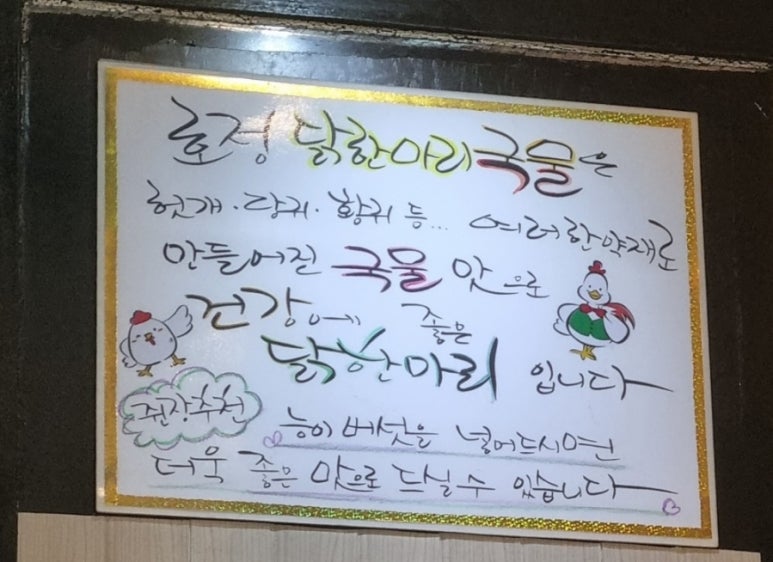 호정 닭한마리국물은
헛개·당귀·황귀 등... 여러한약재로
만들어진 국물 맛으로
건강에 좋은
닭한마리 입니다
쥔장추천 능이버섯을 넣어드시면
더욱 좋은 맛으로 드실수 있습니다